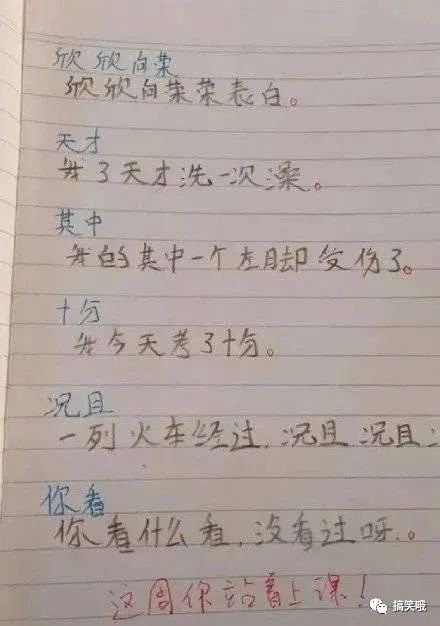 欣欣向荣
欣欣向荣荣表白。
天才
我3天才洗一次澡。
其中
我的其中一个左脚却受伤了。
十分
我今天考了十分。
况且
一列火车经过，况且况且
你看
你看什么看，没看过呀。
这周你站着上课！
搞笑哦